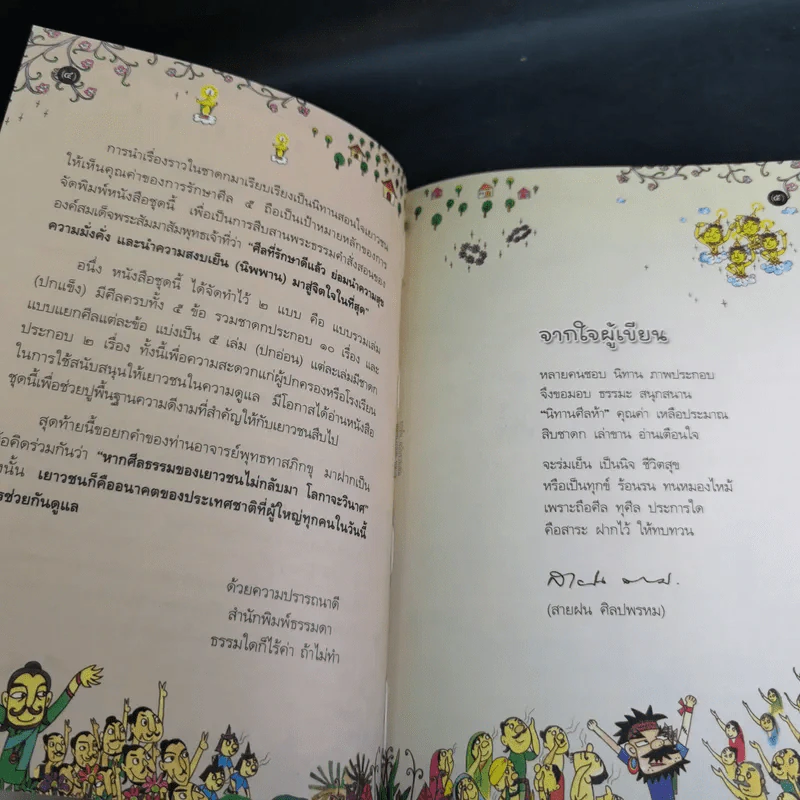 (๔)
การนำเรื่องราวในชาดกมาเรียบเรียงเป็นนิทานสอนใจเยาวชน
ให้เห็นคุณค่าของการรักษาศีล ๕ ถือเป็นเป้าหมายหลักของการ
จัดพิมพ์หนังสือชุดนี้ เพื่อเป็นการสืบสานพระธรรมคำสั่งสอนของ
องค์สมเด็จพระสัมมาสัมพุทธเจ้าที่ว่า "ศีลที่รักษาดีแล้ว ย่อมนำความสุข
ความมั่งคั่ง และนำความสงบเย็น (นิพพาน) มาสู่จิตใจในที่สุด"
อนึ่ง หนังสือชุดนี้ ได้จัดทำไว้ ๒ แบบ คือ แบบรวมเล่ม
(ปกแข็ง) มีศีลครบทั้ง ๕ ข้อ รวมชาดกประกอบ ๑๐ เรื่อง และ
แบบแยกศีลแต่ละข้อ แบ่งเป็น ๕ เล่ม (ปกอ่อน) แต่ละเล่มมีชาดก
ประกอบ ๒ เรื่อง ทั้งนี้เพื่อความสะดวกแก่ผู้ปกครองหรือโรงเรียน
ในการใช้สนับสนุนให้เยาวชนในความดูแล มีโอกาสได้อ่านหนังสือ
ชุดนี้เพื่อช่วยปูพื้นฐานความดีงามที่สำคัญให้กับเยาวชนสืบไป
สุดท้ายนี้ขอยกคำของท่านอาจารย์พุทธทาสภิกขุ มาฝากเป็น
ข้อคิดร่วมกันว่า "หากศีลธรรมของเยาวชนไม่กลับมา โลกาจะวินาศ"
งนั้น เยาวชนก็คืออนาคตของประเทศชาติที่ผู้ใหญ่ทุกคนในวันนี้
รช่วยกันดูแล
ด้วยความปรารถนาดี
สำนักพิมพ์ธรรมดา
ธรรมใดก็ไร้ค่า ถ้าไม่ทำ
(๕)
จากใจผู้เขียน
หลายคนชอบ นิทาน ภาพประกอบ
จึงขอมอบ ธรรมะ สนุกสนาน
"นิทานศีลห้า" คุณค่า เหลือประมาณ
สิบชาดก เล่าขาน อ่านเตือนใจ
จะร่มเย็น เป็นนิจ ชีวิตสุข
หรือเป็นทุกข์ ร้อนรน ทนหมองไหม้
เพราะถือศีล ทุศีล ประการใด
คือสาระ ฝากไว้ ให้ทบทวน
(สายฝน ศิลปพรหม)